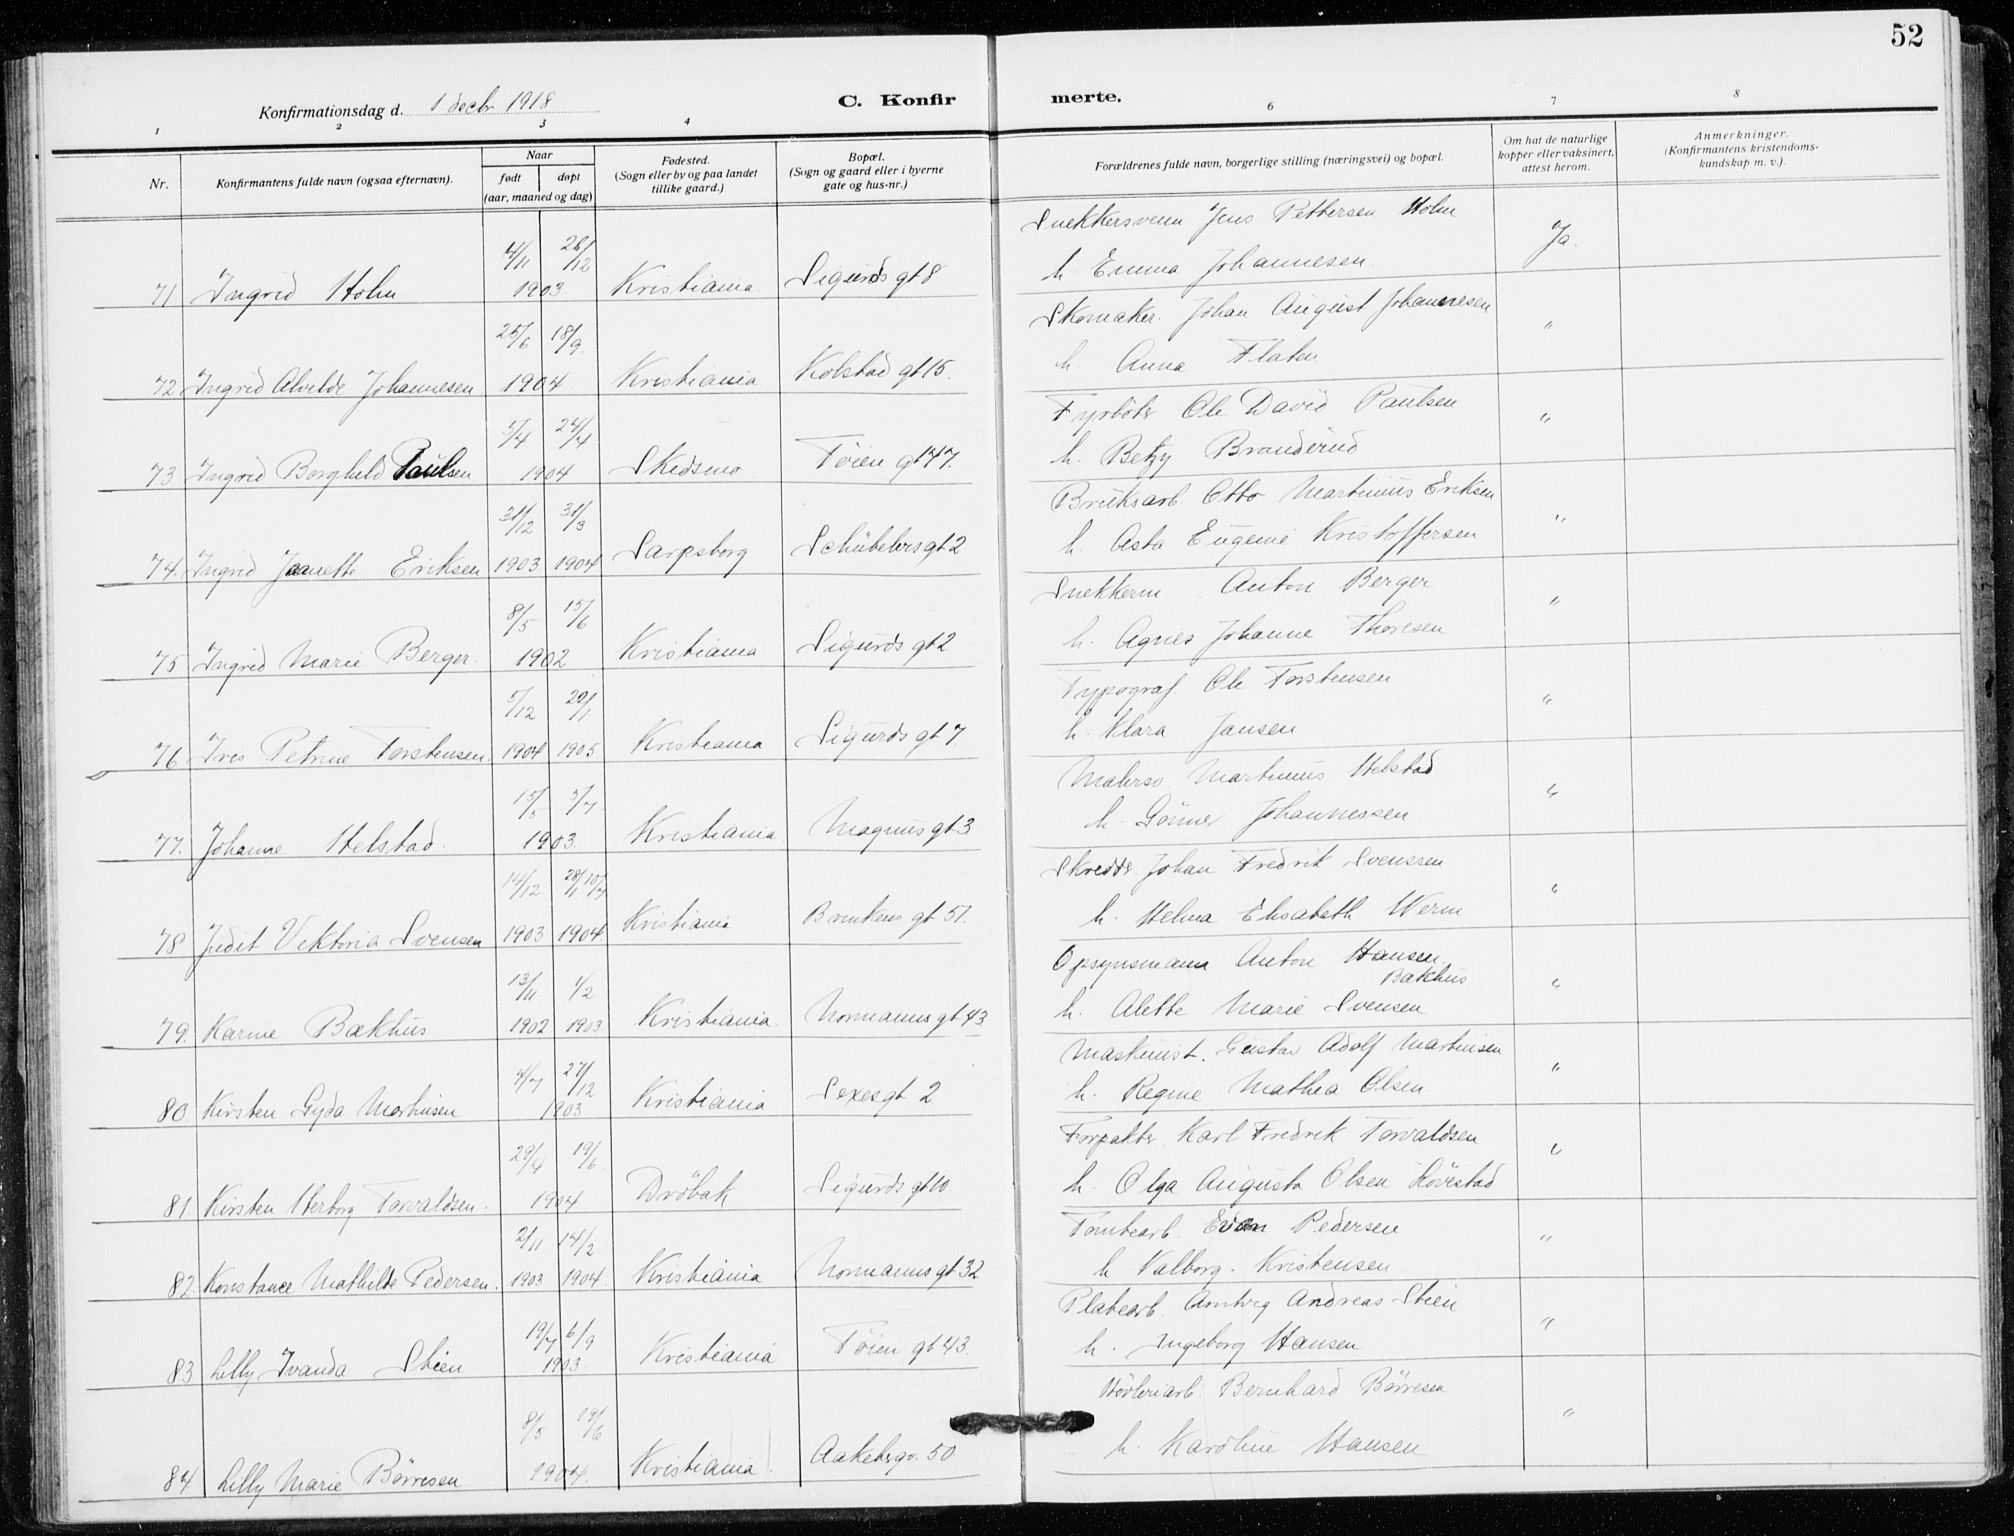 52
Konfirmationsdag d. 1 decbr 1918
C. Konfirmerte.
1 2 3 4 6 7 8
Nr.
Konfirmantens fulde navn (ogsaa efternavn).
Naar
født døpt
(aar, maaned og dag)
Fødested.
(Sogn eller by og paa landet
tillike gaard.)
Bopæl.
(Sogn og gaard eller i byerne
gate og hus-nr.)
Forældrenes fulde navn, borgerlige stilling (næringsvei) og bopæl.
Om hat de naturlige
kopper eller vaksinert,
attest herom.
Anmerkninger.
(Konfirmantens kristendoms-
kundskap m. v.).
Snekkersvenn Jens Pettersen Holm
4/11 26/12 Ja.
h. Emma Johannesen
71 Ingrid Holm 1903 Kristiania Sigurds gt 8
Skomaker. Johan August Johannesen
25/6 18/9 "
h. Anna Flaten
72 Ingrid Alvilde Johannesen 1904 Kristiania Kolstad gt 15.
Fyrbøter Ole David Paulsen
5/4 24/4 "
h. Betzy Branderud
73 Ingrid Borghild Paulsen 1904 Skedsmo Tøien gt 47.
Bruksarb. Otto Martinius Eriksen
31/12 31/3 "
h. Asta Eugenie Kristoffersen
74. Ingrid Janette Eriksen 1903 1904 Sarpsborg Schübelers gt 2
Snekkerm. Anton Berger
8/5 15/6 "
h. Agnes Johanne Thoresen
75 Ingrid Marie Berger 1902 Kristiania Sigurds gt 2
Typograf. Ole Torstensen
5/12 29/1 "
h. Klara Jansen
76 Iris Petrine Torstensen. 1904 1905 Kristiania Sigurds gt 7
Malersv. Martinius Helstad
15/5 5/7 "
h. Gunner Johannessen
77. Johanne Helstad. 1903. Kristiania Magnus gt 3
Skredd. Johan Fredrik Svenssen
14/12 28/1 10/7 "
h. Helma Elisabeth Werm
78 Judit Viktoria Svensen 1903 1904 Kristiania Brinkens gt 51.
Opsynsmann Anton Hansen
Bakhus
13/11 1/2 "
h. Alette Marie Svensen
79. Karine Bækhus 1902 1903 Kristiania Normanns gt 43
Maskinist. Gustav Adolf Martinsen
4/7 27/12 "
h. Regine Mathea Olsen
80 Kirsten Gyda Martinsen 1903 Kristiania Sexes gt 2
Forpakter Karl Fredrik Torvaldsen
29/4 19/6 "
h. Olga Augusta Olsen Hövestad
81 Kirsten Herborg Torvaldsen. 1904 Dröbak Sigurds gt 10
Tomtearb. Even Pedersen
2/11 14/2 "
h Valborg. Kristensen
82. Konstance Mathilde Pedersen. 1903 1904. Kristiania Normanns gt 32
Platearb. Arntvig Andreas Stien
19/7 6/9 "
h. Ingeborg Hansen
83 Lilly Ivanda Stien 1903 Kristiania Tøien gt 43.
Høvleriarb. Bernhard Børresen
8/5 19/6 "
h. Karoline Hansen
84 Lilly Marie Børresen 1904. Kristiania Aakebergv. 50